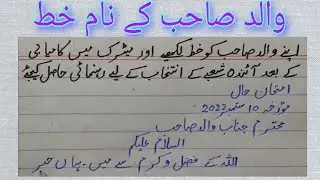 والد صاحب کے نام خط
اپنے والد صاحب کو خط لکھیے اور میٹرک میں کامیابی
کے بعد آئندہ شعبے کے انتخاب کے لیے رہنمائی حاصل کیجئے
امتحان حال
مورخہ 10 ستمبر 2022
محترم جناب والد صاحب
السلام علیکم
اللہ کے فضل و کرم سے میں یہاں خیر